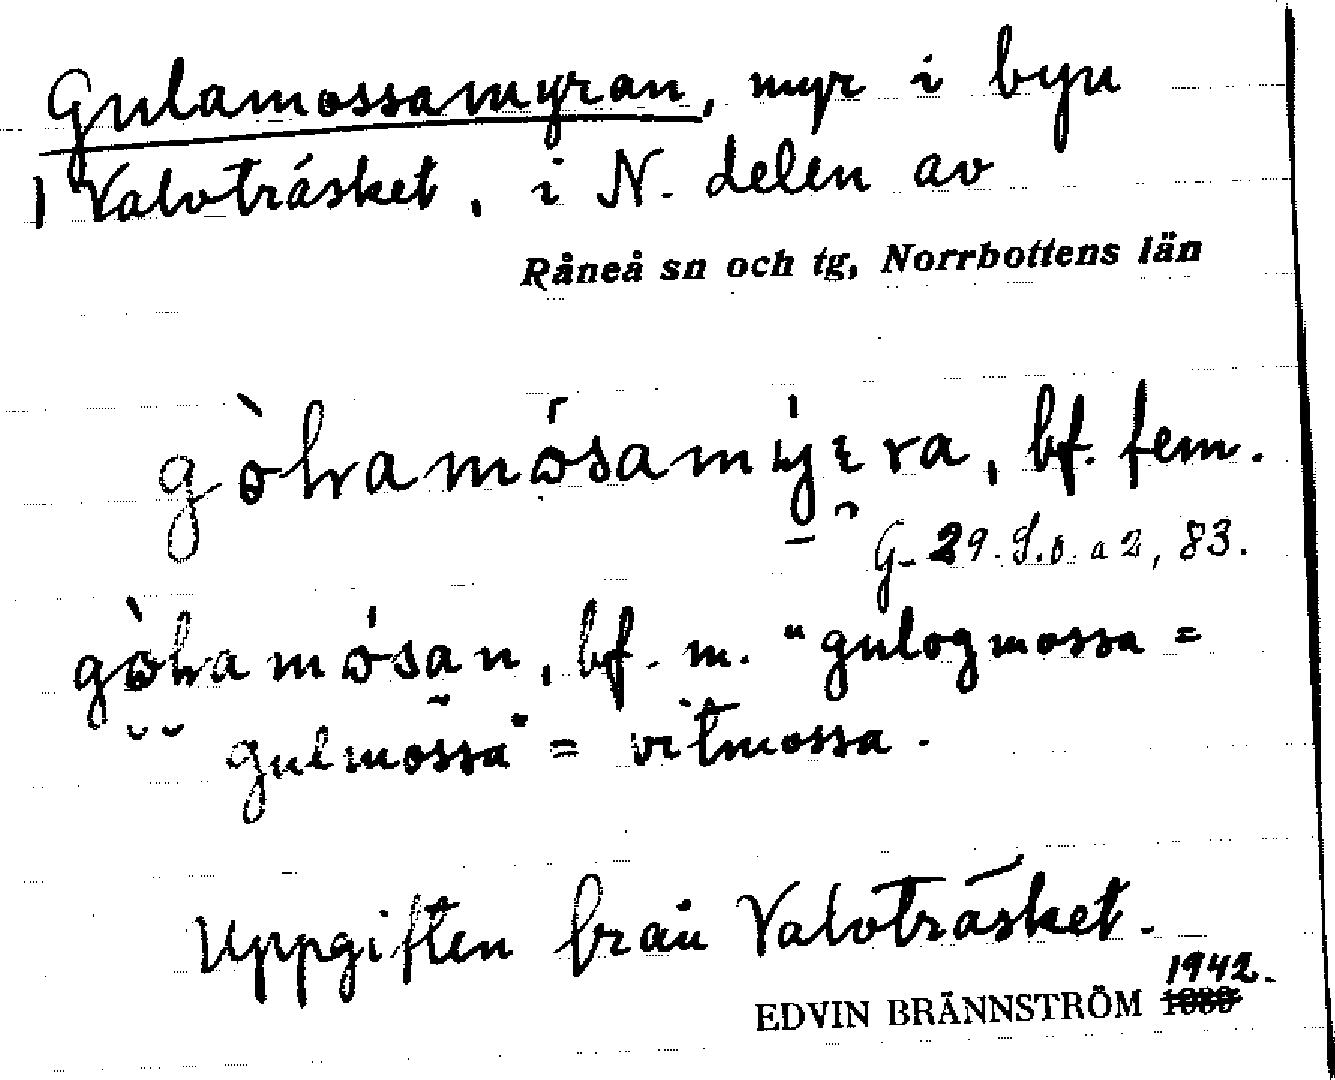 Gulamossamyran, myr i byn
Valvträsket, i N. delen av
Råneå sn och tg, Norrbottens län
bf. fem.
G. 29. S.o. a 2, 83.
bf. m. "gulogmossa =
gulmossa" = vitmossa.
Uppgiften från Valvträsket.
1942.
EDVIN BRÄNNSTRÖM